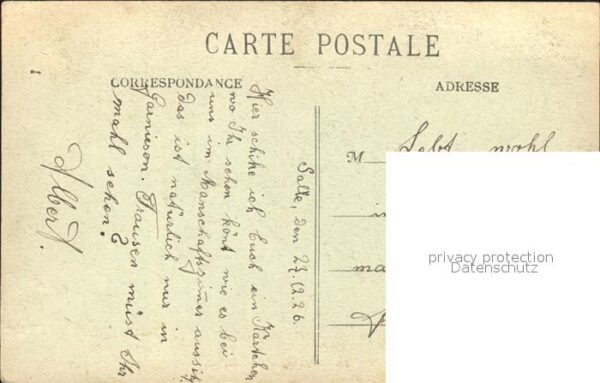 CARTE POSTALE
CORRESPONDANCE
ADRESSE
Salé, den 27.12.26.
Hier schike ich Euch ein Kärtchen
wo Ihr sehen könt wie es bei
uns im Manschaftszimer aussi
das ist natürlich nur in
Garnieson. Drausen müst Ihr
mahl sehen?
Albert.
M Lebt wohl
privacy protection
Datenschutz